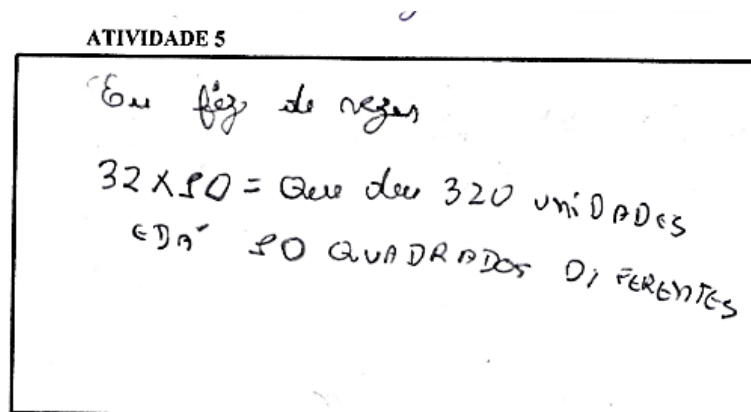 ATIVIDADE 5
Eu féz de vezes
32 X 10 = Que deu 320 UNiDADES
E DÁ 10 QUADRADOS DIFERENTES